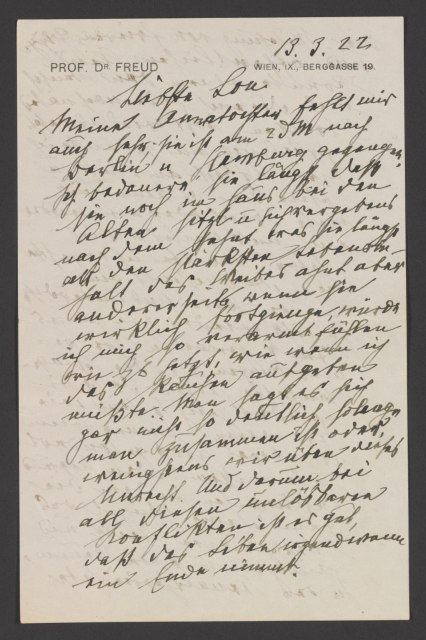 13.3.22
PROF. DR. FREUD
WIEN, IX., BERGGASSE 19.
Liebste Lou
Meine Annatochter fehlt mir
auch sehr. sie ist am 2 d M nach
Berlin u Hamburg gegangen.
bedauere sie längst, daß
sie noch im Haus bei den
Alten sitzt u
nach dem sehnt, was sie längst
als den stärksten Lebensin-
halt des Weibes ahnt aber
andererseits, wenn sie
wirklich fortgienge, würde
ich mich so verarmt fühlen
wie jetzt, wie wenn ich
das Rauchen aufgeben
müßte. Man sagt es sich
gar nicht so deutlich, solange
man zusammen ist oder
wenigstens wir üben dieses
Unrecht. Und darum bei
all diesen unlösbaren
Konflikten ist es gut,
daß das Leben irgendwann
ein Ende nimmt.